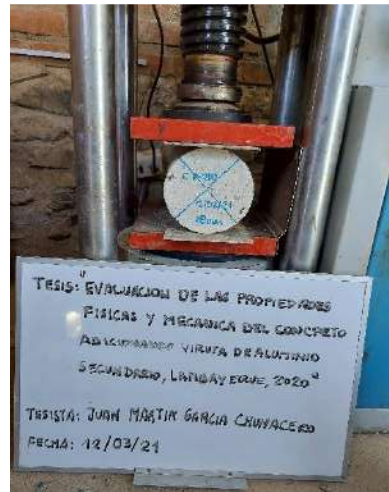 TESIS: "EVALUACION DE LAS PROPIEDADES
FISICAS Y MECANICA DEL CONCRETO
ADICIONANDO VIRUTA DE ALUMINIO
SECUNDARIO, LAMBAYEQUE, 2020"
TESISTA: JUAN MARTIN GARCIA CHUMACERO
FECHA: 12/03/21